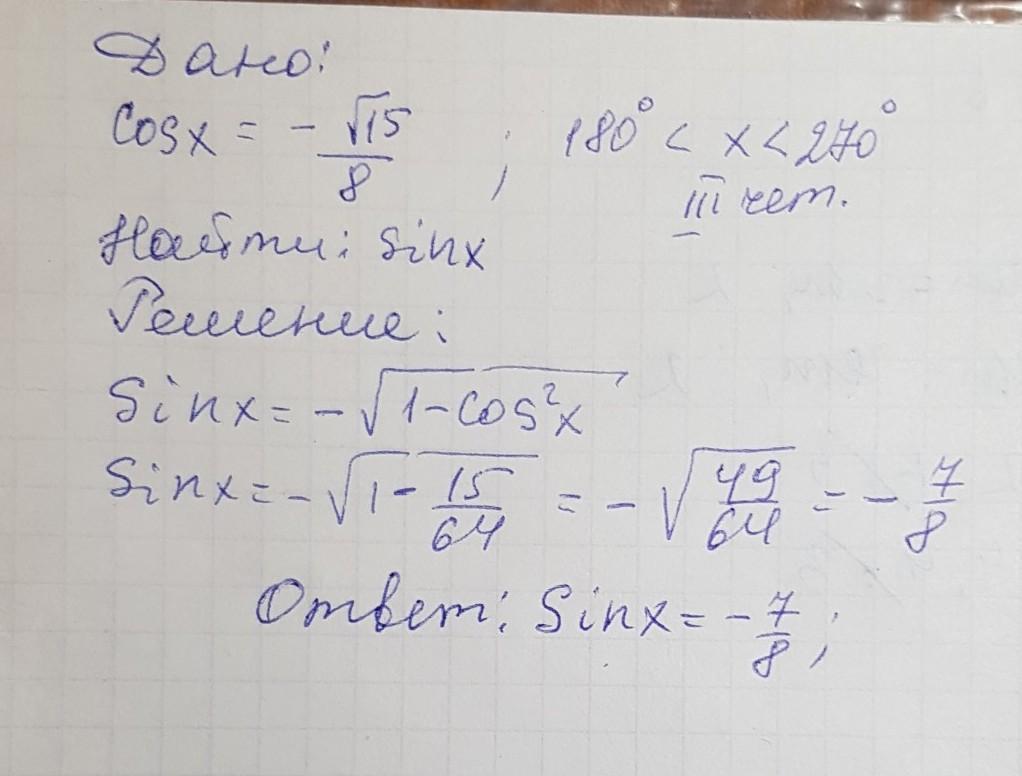 Дано:
cosx = - √15/8 ; 180° < x < 270°
III чет.
Найти: sinx
Решение:
Sinx = -√(1-cos²x)
Sinx = -√(1 - 15/64) = -√(49/64) = - 7/8
Ответ: Sinx = - 7/8;